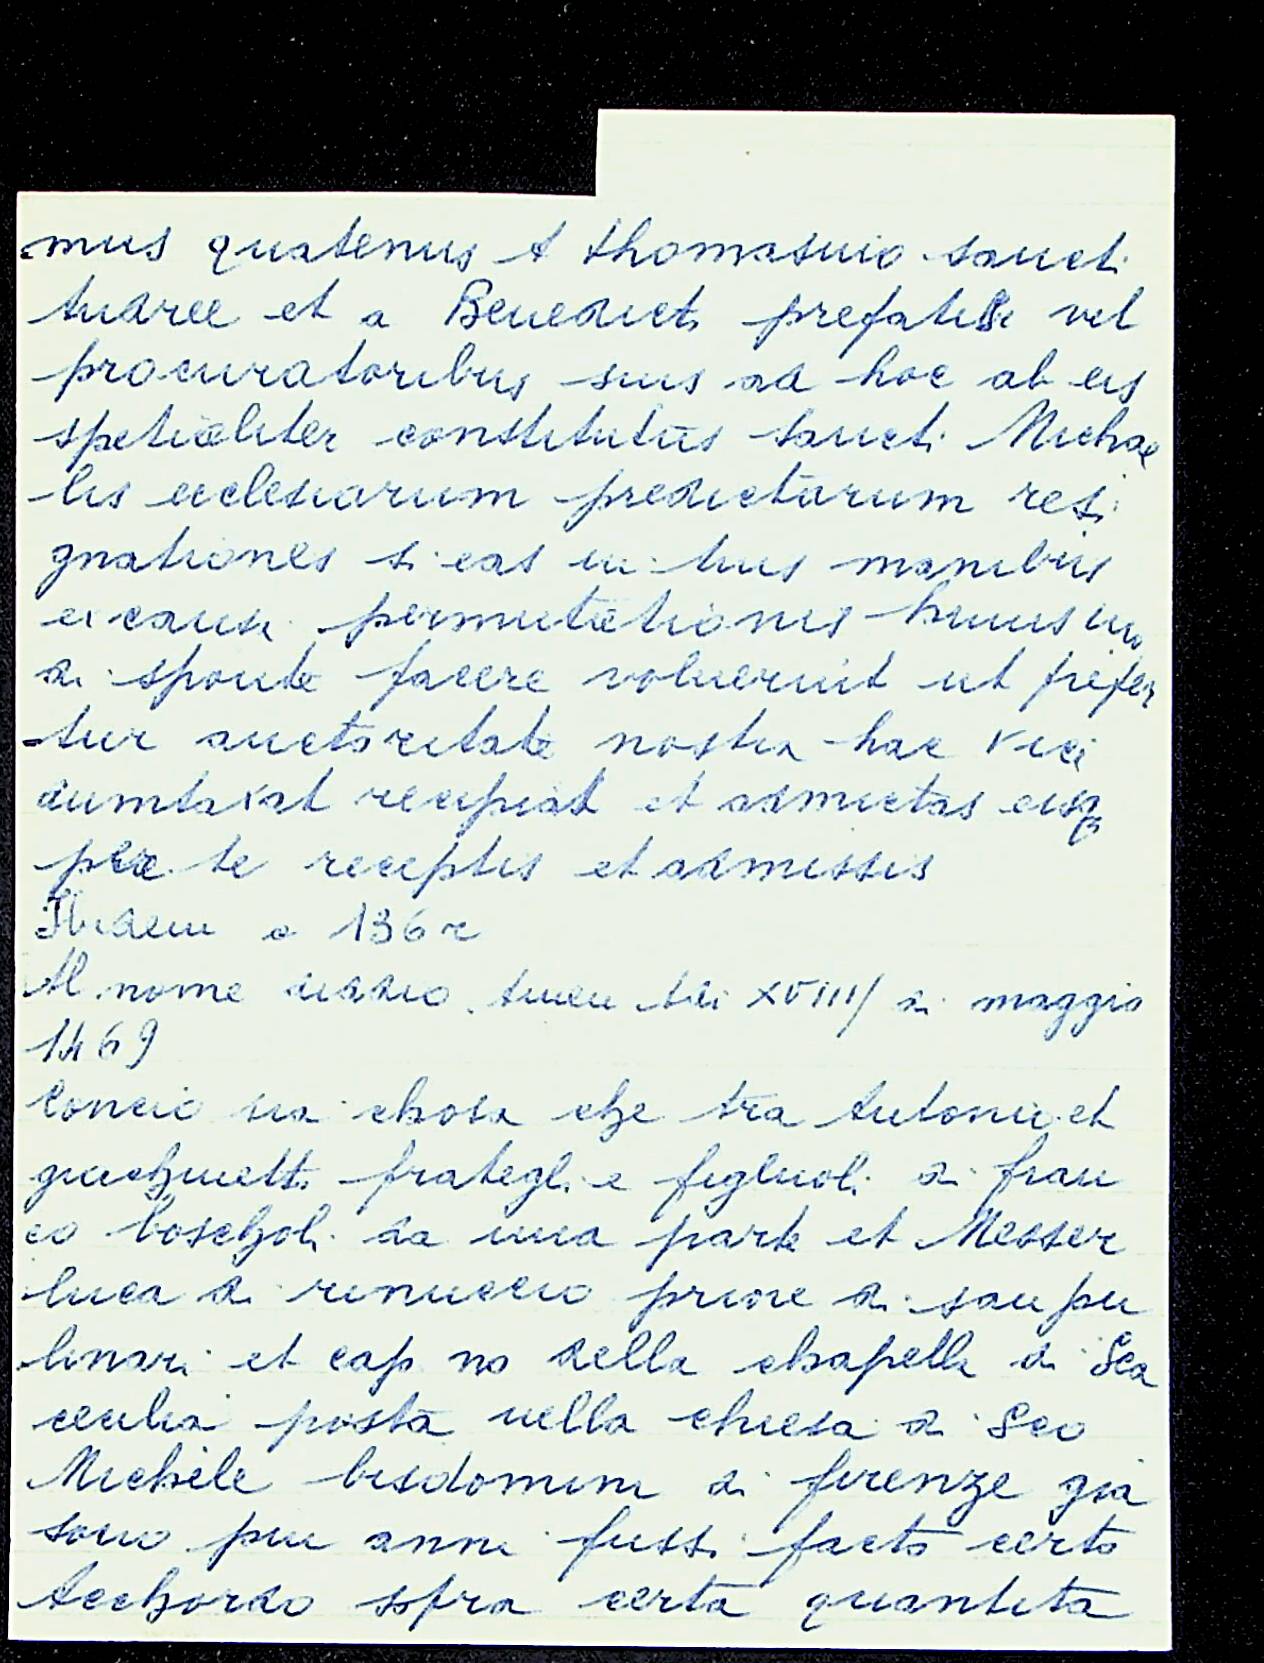 mus quatenus A thomasuio sancti
Andree et a Benedicti prefatis vel
procuratoribus suis ad hoc ab eis
spetialiter constitutis sancti Michae
lis ecclesiarum predictarum resi
gnationes si eas in tuis manibus
ex causa permutationis huius mo
di sponte facere voluerint ut prefer
tur auctoritate nostra hac vice
dumtaxat recipias et admictas eisq
per te receptis et admissis
Ibidem a 136 r
Al nome didio Amen Adi XVIIII di maggio
1469
Concio sia chosa che tra Antonio et
guichuetti frategli e figliuoli di fran
co boscholi da una parte et Messer
luca di rinuccio priore di san pu
linari et cap no della chapella di Sca
cecilia posta nella chiesa di Sco
Michele bisdomini di firenze gia
sono piu anni fussi facto certo
Acchordo sopra certa quantita